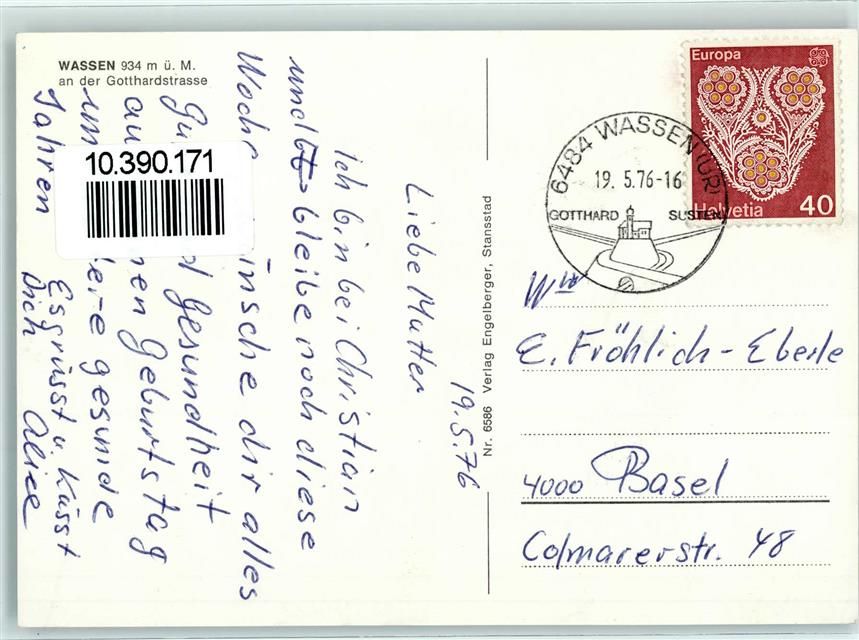 WASSEN 934 m ü. M.
an der Gotthardstrasse
10.390.171
19.5.76
Liebe Mutter
Ich bin bei Christian
und bleibe noch diese
Woche wünsche dir alles
Gute und Gesundheit
Geburtstag
um gesunde
Jahren
Es grüsst u. Küsst
Dich Alice
Nr. 6586 Verlag Engelberger, Stansstad
Europa
Helvetia 40
6484 WASSEN (UR)
19. 5.76-16
GOTTHARD SUSTEN
E. Fröhlich-Eberle
4000 Basel
Colmarerstr. 48